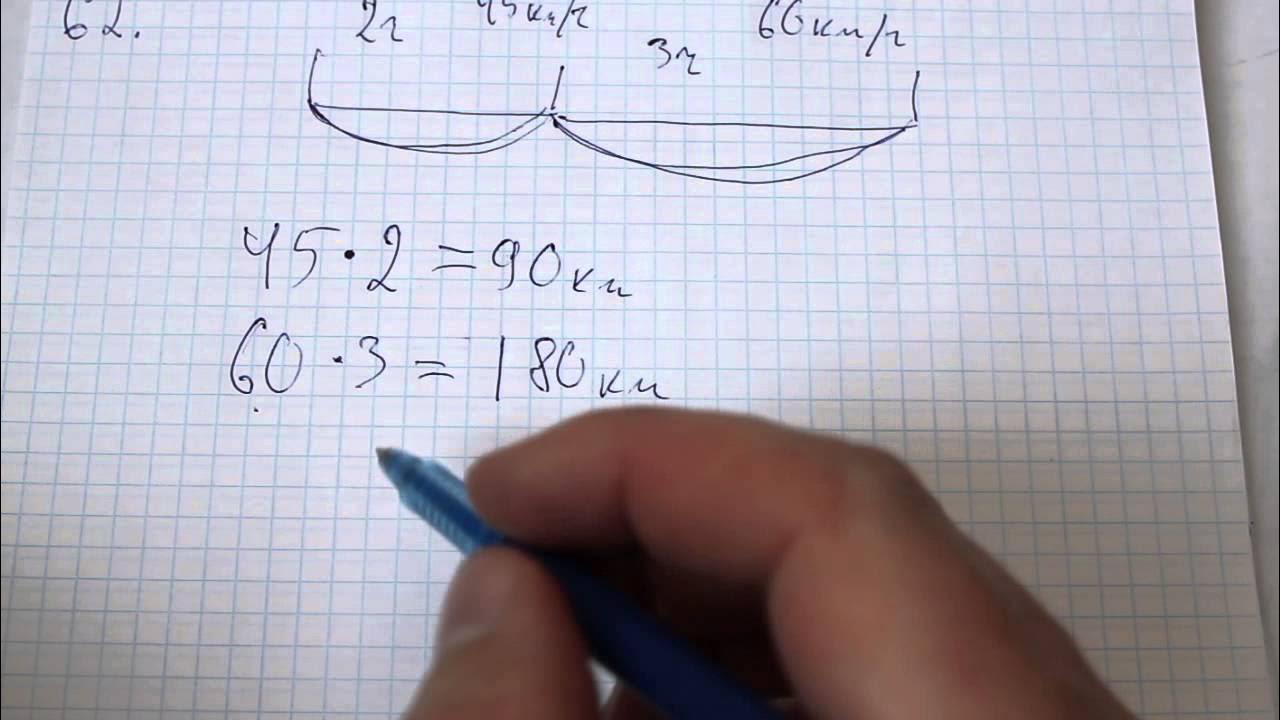 62. 2ч 45км/ч 60км/ч
3ч
45·2=90км
60·3=180км